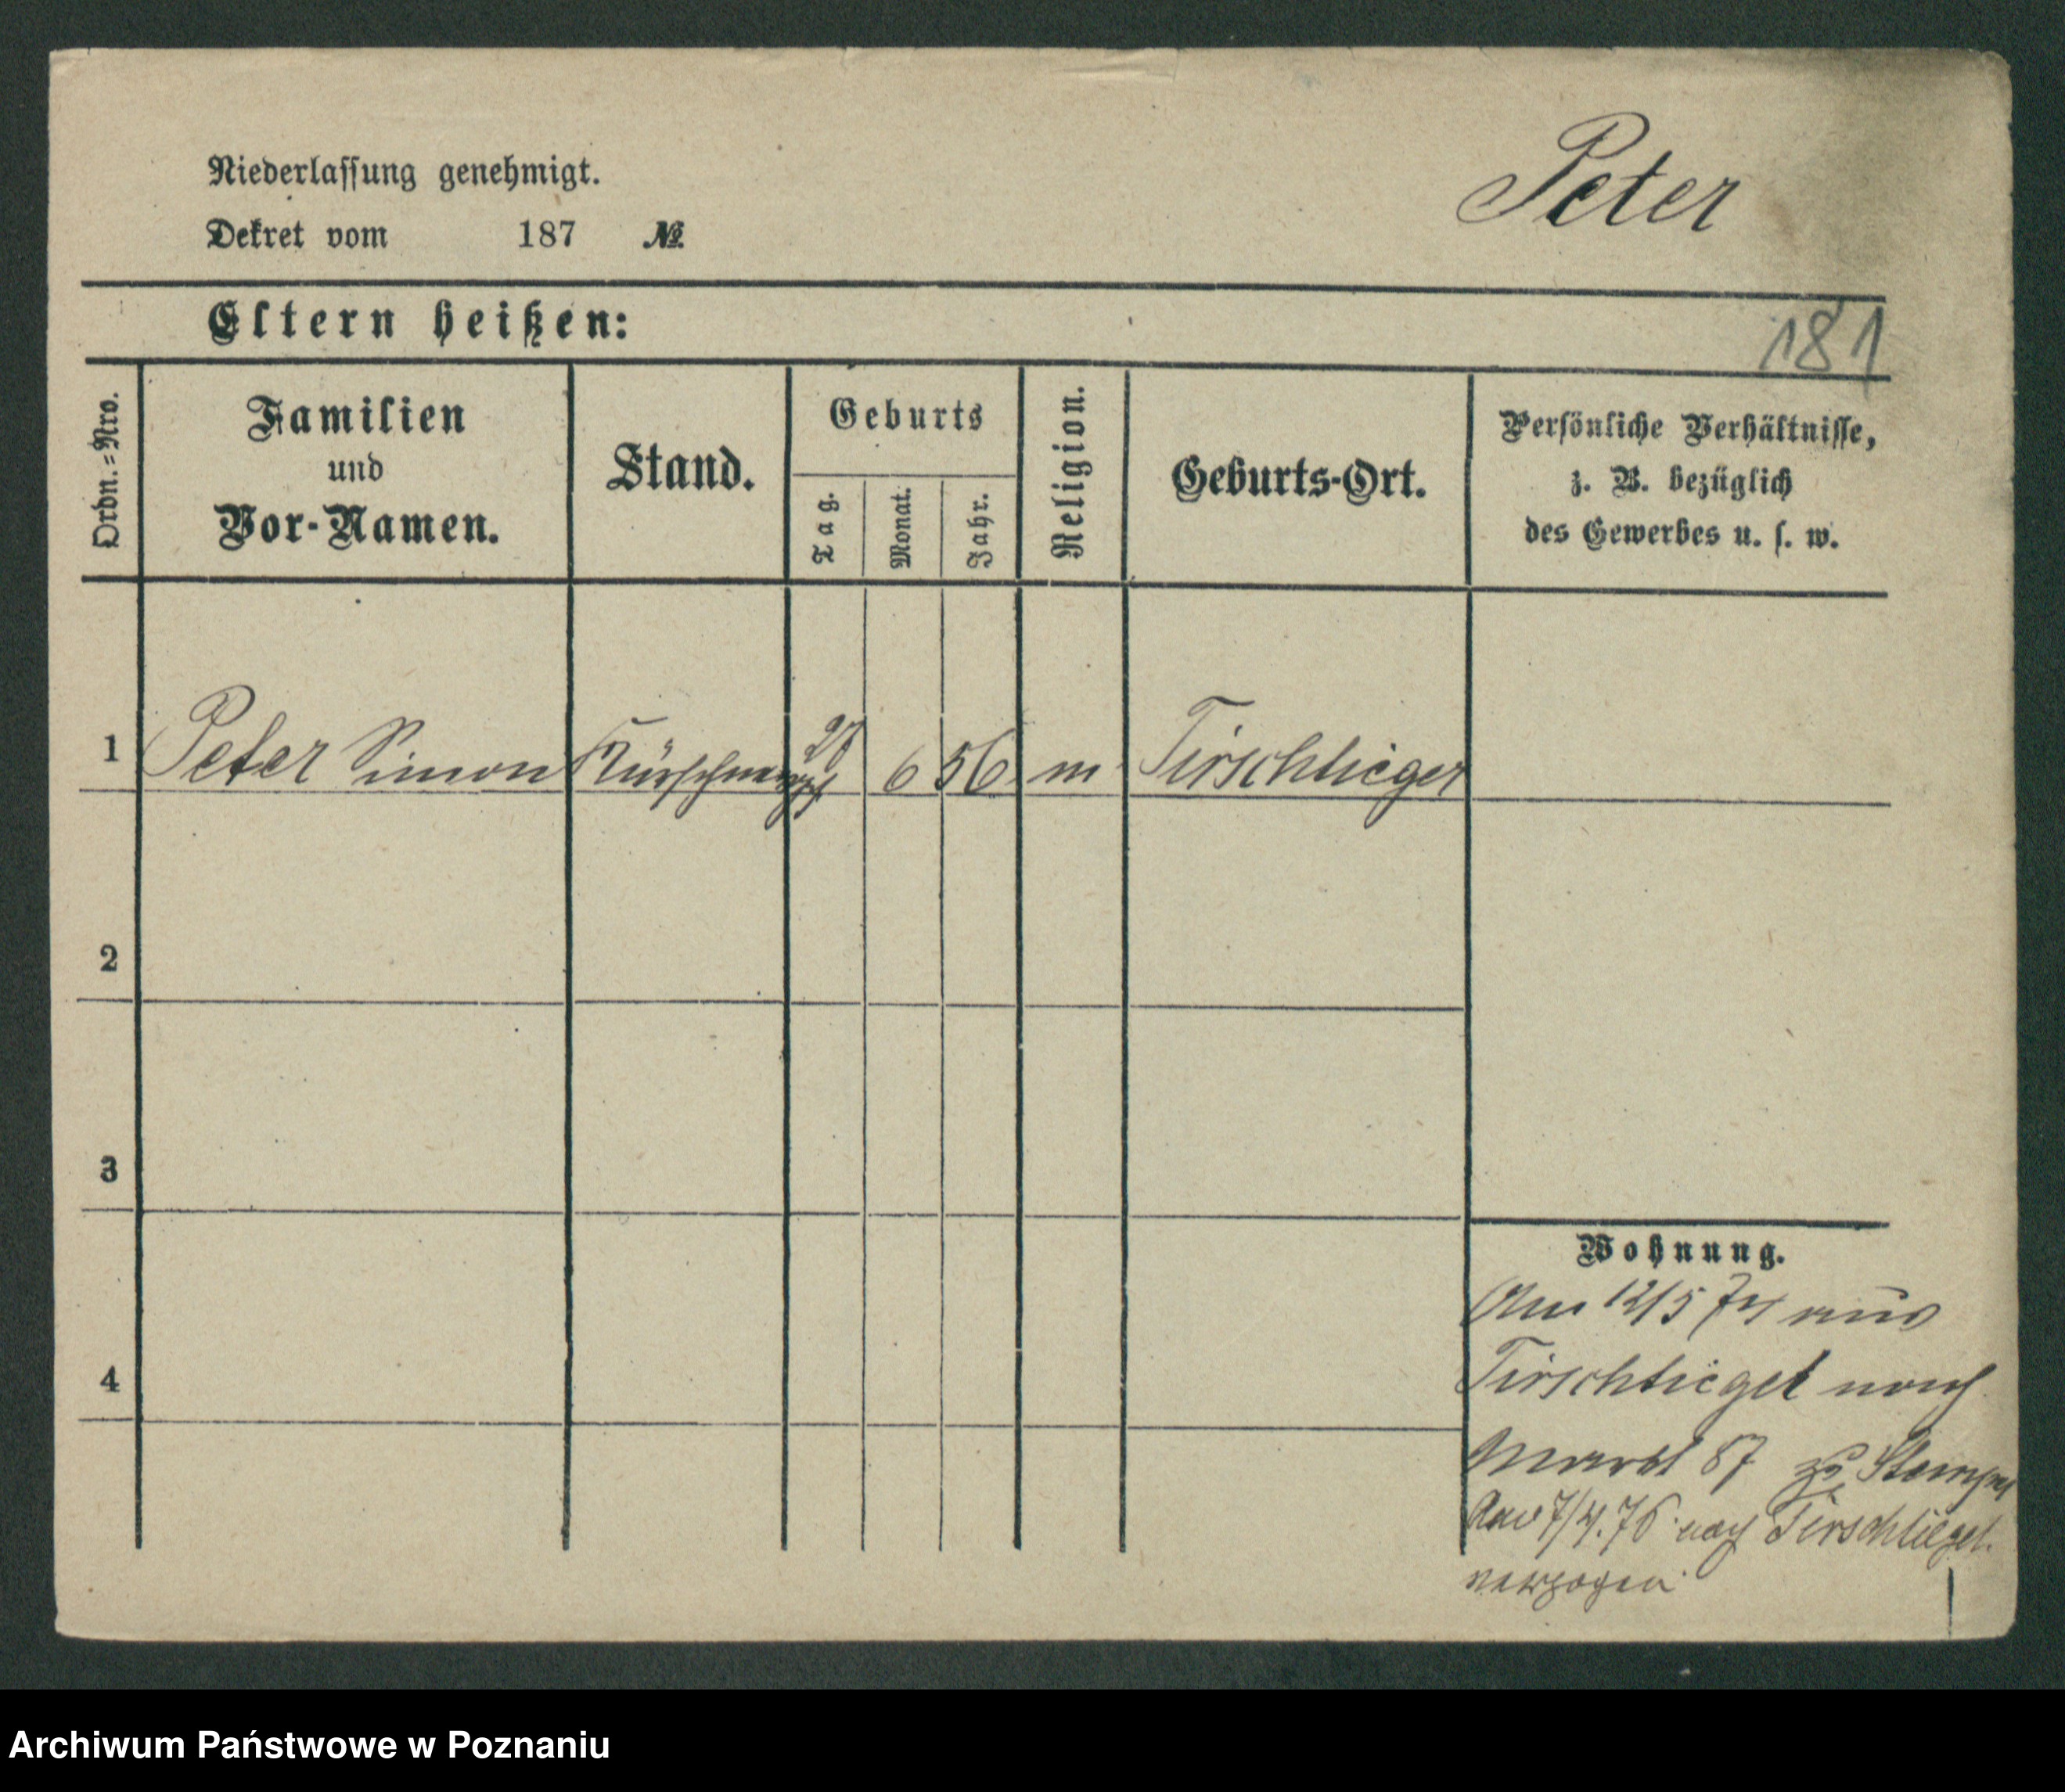 Niederlassung genehmigt.
Dekret vom 187 №
Peter
Eltern heißen:
181
Ordn.=Nro.
Familien
und
Vor-Namen.
Stand.
Geburts
Tag.
Monat.
Jahr.
Religion.
Geburts-Ort.
Persönliche Verhältnisse,
z. B. bezüglich
des Gewerbes u. s. w.
1 Peter Simon 6 56 m Tirschtieger
2
3
4
Wohnung.
Am 12/5 74 aus
Tirschtiegel nach
Markt 87
Am 7/4. 76 nach Tirschtiegel.
verzogen.
Archiwum Państwowe w Poznaniu